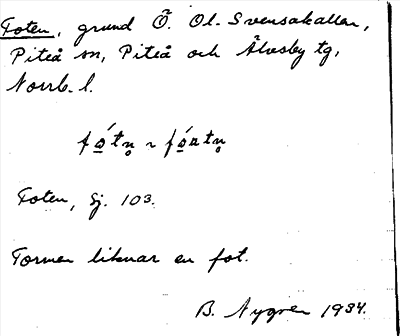 Foten, grund Ö. Ol-Svensakallen,
Piteå sn, Piteå och Älvsby tg,
Norrb. l.
fó̲tn̥ ~ fó̲ɑtn̥
Foten, Sj. 103.
Formen liknar en fot.
B. Nygren 1934.